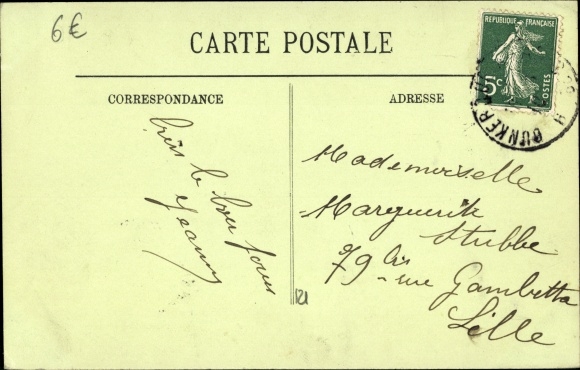 6€
CARTE POSTALE
RÉPUBLIQUE FRANÇAISE
5c
POSTES
DUNKER
CORRESPONDANCE
ADRESSE
bon jour
Jeanny
Mademoiselle
Marguerite
Stubbe
79 bis rue Gambetta
Lille
121